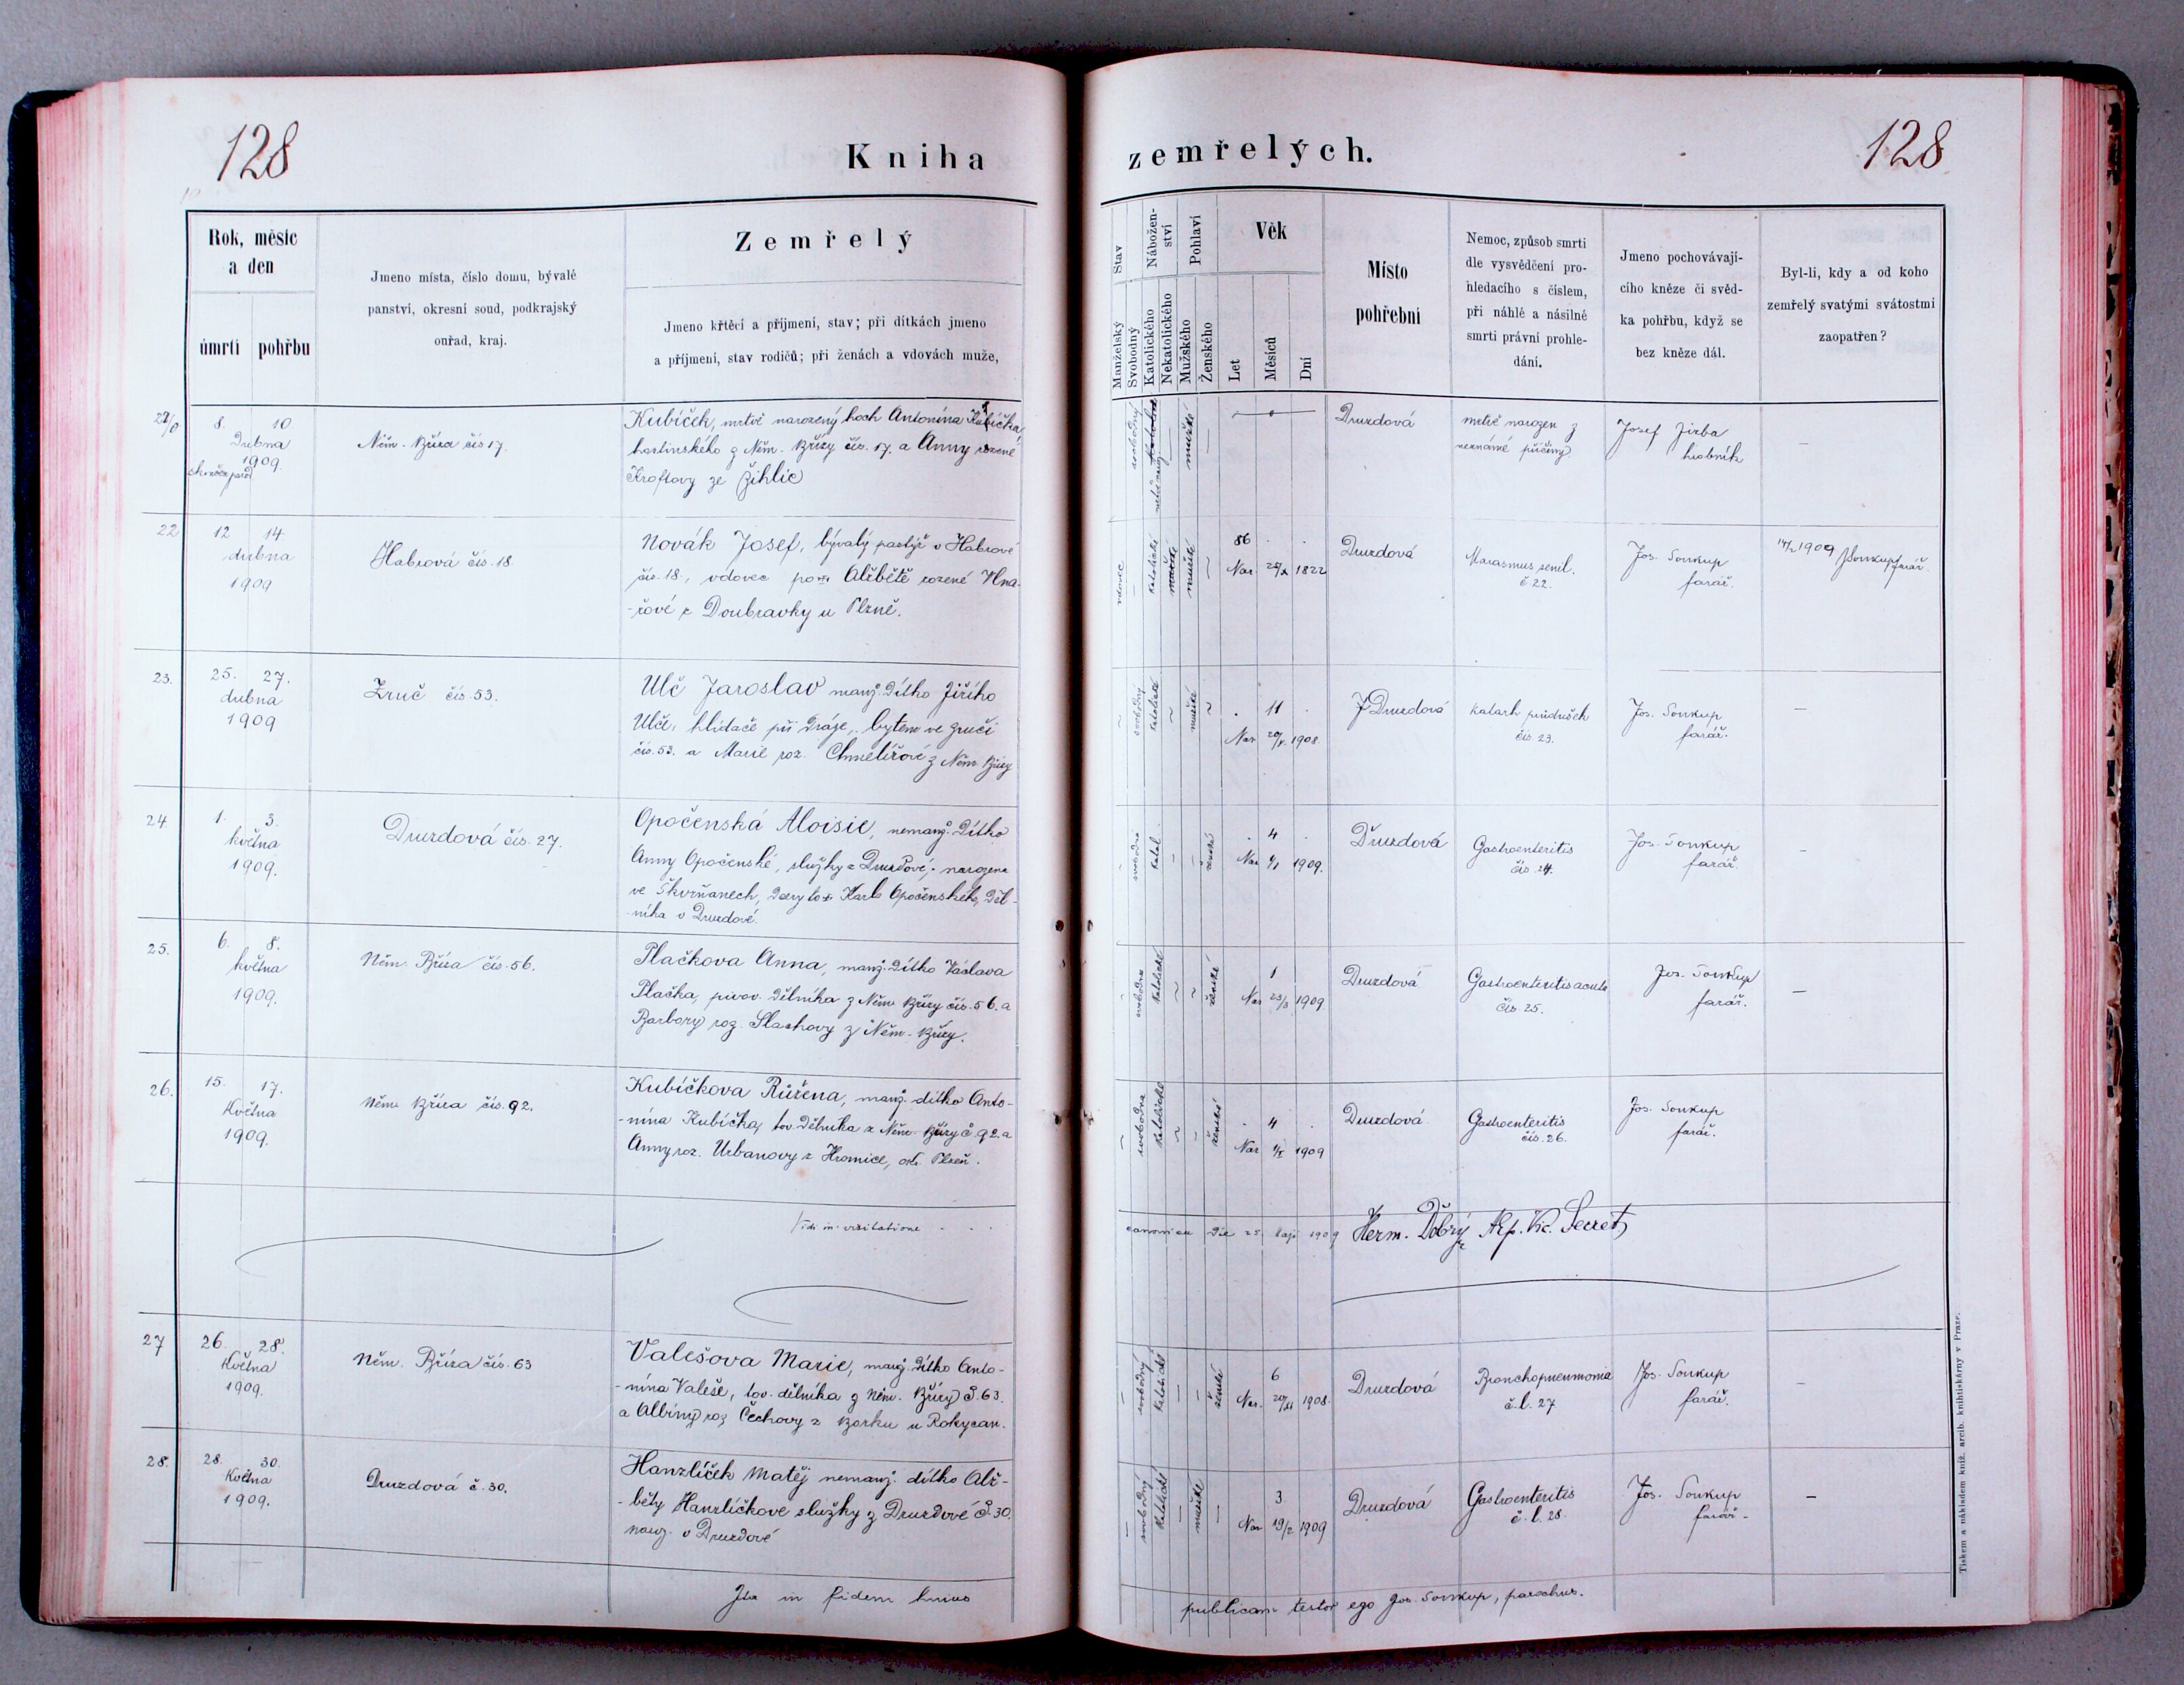 128
Kniha
zemřelých.
128
Rok, měsíc
a den
úmrtí pohřbu
Jmeno místa, číslo domu, bývalé
panství, okresní soud, podkrajský
ouřad, kraj.
Zemřelý
Jmeno křtěcí a příjmení, stav; při dítkách jmeno
a příjmení, stav rodičů; při ženách a vdovách muže,
Stav
Manželský
Svobodný
Nábožen-
ství
Katolického
Nekatolického
Pohlaví
Mužského
Ženského
Věk
Let
Měsíců
Dní
Místo
pohřební
Nemoc, způsob smrti
dle vysvědčení pro-
hledacího s číslem,
při náhlé a násilné
smrti právní prohle-
dání.
Jmeno pochovávají-
cího kněze či svěd-
ka pohřbu, když se
bez kněze dál.
Byl-li, kdy a od koho
zemřelý svatými svátostmi
zaopatřen?
8. 10
Dubna
1909.
Něm. Bříza čís 17.
Kubíček, mrtvě narozený hoch Antonína Kubíčka,
hostinského z Něm. Břízy čís. 17. a Anny rozené
Kroftovy ze Žihlic
mužské
Druzdová
mrtvě narozen z
neznámé příčiny.
Josef Jirba
hrobník
—
22
12 14
dubna
1909
Habrová čís. 18.
Novák Josef, bývalý pastýř v Habrové
čís. 18., vdovec po Alžbětě rozené
z Doubravky u Plzně.
vdovec
katolické
mužské
86 . .
Nar. 1822
Druzdová
Marasmus senil.
č 22.
Jos. Soukup
farář.
1909 JSoukup farář.
23.
25. 27.
dubna
1909
Zruč čís. 53.
Ulč Jaroslav manž. dítko Jiřího
Ulče, hlídače při dráze, bytem ve Zruči
čís. 53. a Marie roz. Chmelířové z Něm Břízy
svobodný
katolické
mužské
. 11 .
Nar 1908.
Druzdová
Katarh průdušek
čís. 23.
Jos. Soukup
farář.
—
24.
1. 3.
května
1909.
Druzdová čís. 27.
Opočenská Aloisie, nemanž. dítko
Anny Opočenské, služky z Druzdové, narozena
ve Škvrňanech, dcery Karla Opočenského, děl-
níka v Druzdové.
svobodná
katol.
ženské
. 4 .
Nar 1/1 1909.
Druzdová
Gastroenteritis
čís. 24.
Jos. Soukup
farář.
—
25.
6. 8.
května
1909.
Něm. Bříza čís. 56.
Plačkova Anna, manž. dítko Václava
Plačka, pivov. dělníka z Něm Břízy čís. 56. a
Barbory roz. Slachovy z Něm. Břízy.
svobodná
katolické
ženské
1
Nar 23/3 1909
Druzdová
Gastroenteritis acuta
čís. 25.
Jos. Soukup
farář.
—
26.
15. 17.
Května
1909.
Něm. Bříza čís. 92.
Kubíčkova Růžena, manž. dítko Anto-
-nína Kubíčka, tov. dělníka z Něm. Břízy č. 92. a
Anny roz. Urbanovy z Hromice, okr. Plzeň.
svobodná
katolické
ženské
. 4 .
Nar 1909
Druzdová
Gastroenteritis
čís. 26.
Jos. Soukup
farář.
Vidi in visitatione
canonica die 25. Maji 1909 Herm. Dobrý Secret
27
26. 28.
Května
1909.
Něm. Bříza čís. 63
Valešova Marie, manž. dítko Anto-
-nína Valeše, tov. dělníka z Něm. Břízy č. 63.
a Albiny roz Čechovy z Borku u Rokycan.
svobodný
katolické
ženské
6
Nar. 20/XI 1908.
Druzdová
Bronchopneumonia
č. l. 27
Jos. Soukup
farář.
—
28.
28. 30.
Května
1909.
Druzdová č. 30.
Hanzlíček Matěj nemanž. dítko Alž-
-běty Hanzlíčkove služky z Druzdové č. 30.
naroz. v Druzdové
svobodný
katolické
mužské
3
Nar 19/2 1909
Druzdová
Gastroenteritis
č. l. 28.
Jos. Soukup
farář.
—
Ita in fidem huius
publicam testor ego Jos. Soukup, parochus.
Tiskem a nákladem kníž. arcib. knihtiskárny v Praze.